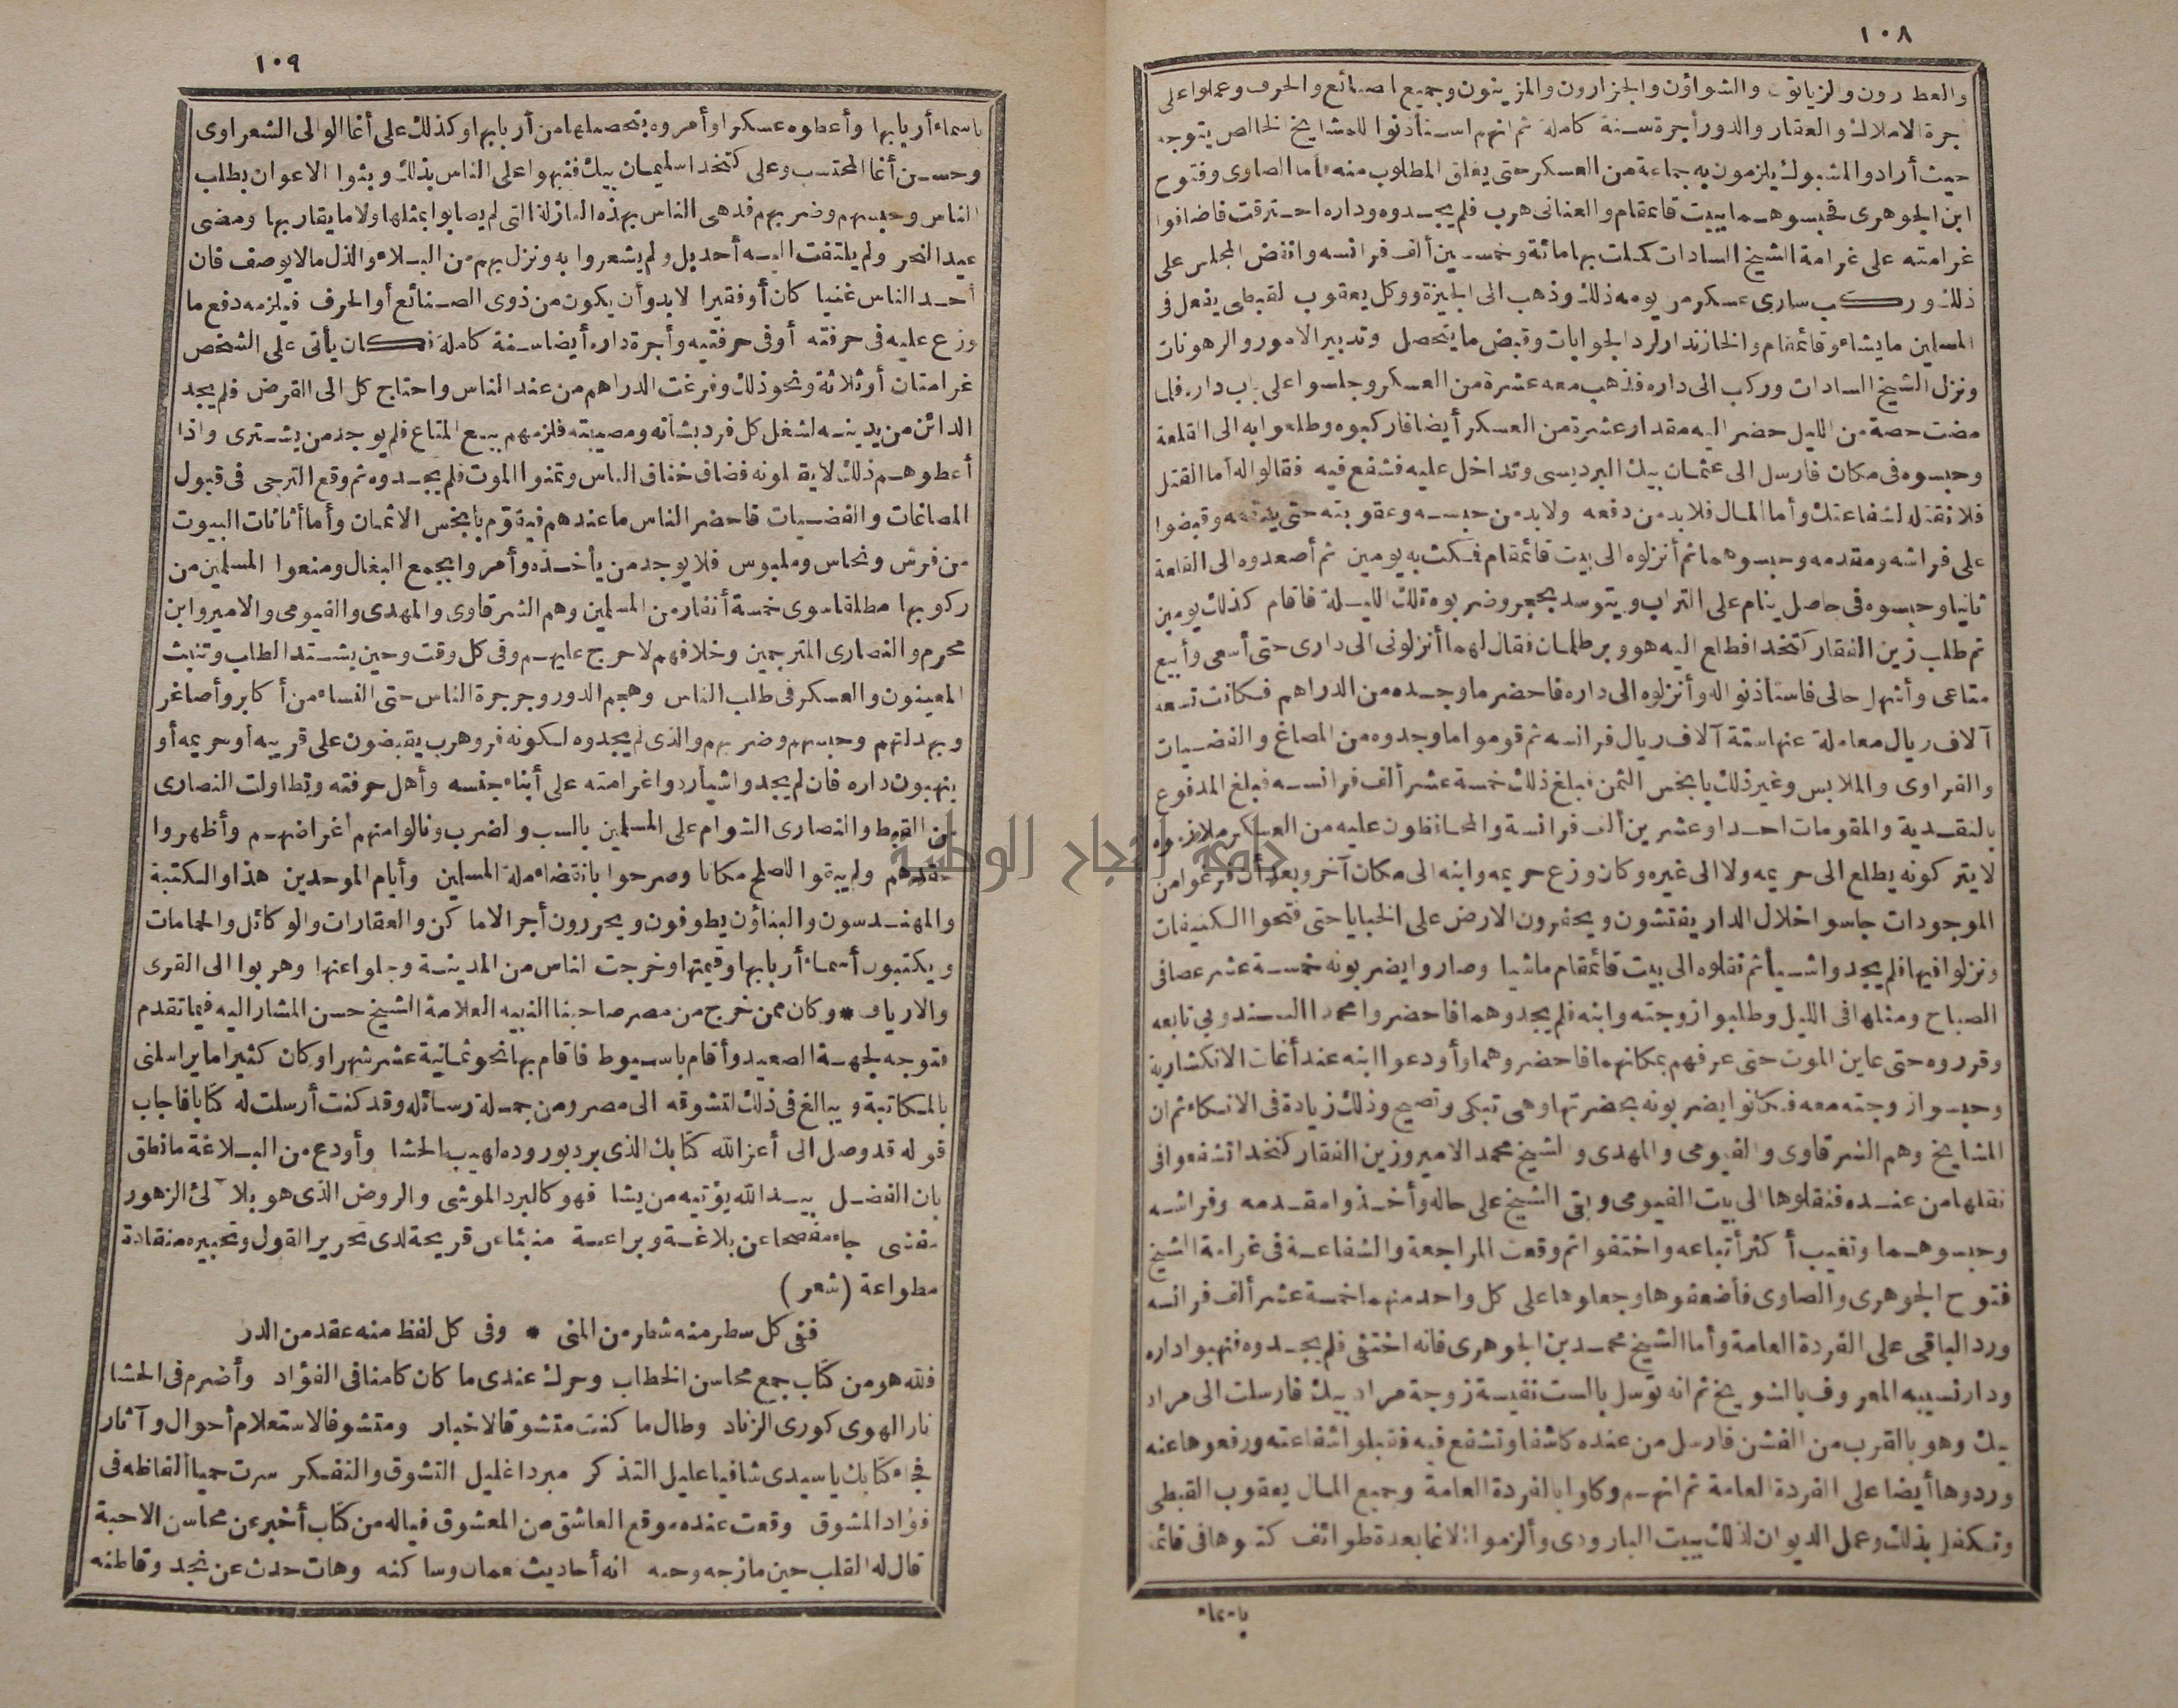 ١٠٨
والعطارون والزياتون والشواؤن والجزارون والمزينون وجميع الصنائع والحرف وعملوا على
أجرة الاملاك والعقار والدور أجرة سنة كاملة ثم انهم استأذنوا للمشايخ الخالص يتوجه
حيث أراد والمشبوك يلزمون به جماعة من العسكر حتى يغلق المطلوب منه فاما الصاوى وفتوح
ابن الجوهرى فحبسوهما ببيت قائمقام والعنانى هرب فلم يجدوه وداره احترقت فاضافوا
غرامته على غرامة الشيخ السادات كملت بها مائة وخمسين ألف فرانسه وانفض المجلس على
ذلك وركب سارى عسكر من يومه ذلك وذهب الى الجيزة ووكل يعقوب القبطى يفعل فى
المسلمين ما يشاء وقائمقام والخازندار لرد الجوابات وقبض ما يتحصل وتدبير الامور والرهونات
ونزل الشيخ السادات وركب الى داره فذهب معه عشرة من العسكر وجلسوا على باب داره فلما
مضت حصة من الليل حضر اليه مقدار عشرة من العسكر أيضا فاركبوه وطلعوا به الى القلعة
وحبسوه فى مكان فارسل الى عثمان بيك البرديسى وتداخل عليه فشفع فيه فقالوا له أما القتل
فلا نقتله لشفاعتك وأما المال فلا بد من دفعه ولا بد من حبسه وعقوبته حتى يدفعه وقبضوا
على فراشه ومقدمه وحبسوهما ثم أنزلوه الى بيت قائمقام فمكث به يومين ثم أصعدوه الى القلعة
ثانيا وحبسوه فى حاصل ينام على التراب ويتوسد بحجر وضربوه تلك الليلة فاقام كذلك يومين
ثم طلب زين الفقار كتخدا فطلع اليه هو وبرطلمان فقال لهما أنزلونى الى دارى حتى أسعى وأبيع
متاعى وأشهل حالى فاستأذنوا له وأنزلوه الى داره فاحضر ما وجده من الدراهم فكانت تسعة
آلاف ريال معاملة عنها ستة آلاف ريال فرانسه ثم قوموا ما وجدوه من المصاغ والفضيات
والفراوى والملابس وغير ذلك بابخس الثمن فبلغ ذلك خمسة عشر ألف فرانسه فبلغ المدفوع
بالنقدية والمقومات احدا وعشرين ألف فرانسة والمحافظون عليه من العسكر ملازموه
لا يتركونه يطلع الى حريمه ولا الى غيره وكان وزع حريمه وابنه الى مكان آخر وبعد أن فرغوا من
الموجودات جاسوا خلال الدار يفتشون ويحفرون الارض على الخبايا حتى فتحوا الكنيفات
ونزلوا فيها فلم يجدوا شيأ ثم نقلوه الى بيت قائمقام ماشيا وصاروا يضربونه خمسة عشر عصا فى
الصباح ومثلها فى الليل وطلبوا زوجته وابنه فلم يجدوهما فاحضروا محمدا السندوبى تابعه
وقرروه حتى عاين الموت حتى عرفهم بمكانهما فاحضروهما وأودعوا ابنه عند أغات الانكشارية
وحبسوا زوجته معه فكانوا يضربونه بحضرتها وهى تبكى وتصيح وذلك زيادة فى الانكاء ثم ان
المشايخ وهم الشرقاوى والفيومى والمهدى والشيخ محمد الامير وزين الفقار كتخدا تشفعوا فى
نقلها من عنده فنقلوها الى بيت الفيومى وبقى الشيخ على حاله وأخذوا مقدمه وفراشه
وحبسوهما وتغيب أكثر أتباعه واختفوا ثم وقعت المراجعة والشفاعة فى غرامة الشيخ
فتوح الجوهرى والصاوى فأضعفوها وجعلوها على كل واحد منهما خمسة عشر ألف فرانسه
ورد الباقى على الفردة العامة وأما الشيخ محمد بن الجوهرى فانه اختفى فلم يجدوه فنهبوا داره
ودار نسيبه المعروف بالشويخ ثم انه توسل بالست نفيسة زوجة مراد بيك فارسلت الى مراد
بيك وهو بالقرب من الفشن فارسل من عنده كاشفا وتشفع فيه فقبلوا شفاعته ورفعوها عنه
وردوها أيضا على الفردة العامة ثم انهم وكلوا بالفردة العامة وجميع المال يعقوب القبطى
وتكفل بذلك وعمل الديوان لذلك ببيت البارودى وألزموا الاغا بعدة طوائف كتبوها فى قائمة
باسماء
١٠٩
باسماء أربابها وأعطوه عسكرا وأمروه بتحصيلها من أربابها وكذلك على أغا الوالى الشعراوى
وحسن أغا المحتسب وعلى كتخدا سليمان بيك فنبهوا على الناس بذلك وبثوا الاعوان بطلب
الناس وحبسهم وضربهم فدهى الناس بهذه النازلة التى لم يصابوا بمثلها ولا ما يقاربها ومضى
عيد النحر ولم يلتفت اليه أحد بل ولم يشعروا به ونزل بهم من البلاء والذل ما لا يوصف فان
أحد الناس غنيا كان أو فقيرا لا بد وأن يكون من ذوى الصنائع أو الحرف فيلزمه دفع ما
وزع عليه فى حرفته أو فى حرفتيه وأجرة داره أيضا سنة كاملة فكان يأتى على الشخص
غرامتان أو ثلاثة ونحو ذلك وفرغت الدراهم من عند الناس واحتاج كل الى القرض فلم يجد
الدائن من يدينه لشغل كل فرد بشأنه ومصيبته فلزمهم بيع المتاع فلم يوجد من يشترى واذا
أعطوهم ذلك لا يقبلونه فضاق خناق الناس وتمنوا الموت فلم يجدوه ثم وقع الترجى فى قبول
المصاغات والفضيات فاحضر الناس ما عندهم فيقوّم بابخس الاثمان وأما أثاثات البيوت
من فرش ونحاس وملبوس فلا يوجد من يأخذه وأمروا بجمع البغال ومنعوا المسلمين من
ركوبها مطلقا سوى خمسة أنفار من المسلمين وهم الشرقاوى والمهدى والفيومى والامير وابن
محرم والنصارى المترجمين وخلافهم لا حرج عليهم وفى كل وقت وحين يشتد الطلب وتنبث
المعينون والعسكر فى طلب الناس وهجم الدور وجرجرة الناس حتى النساء من أكابر وأصاغر
وبهدلتهم وحبسهم وضربهم والذى لم يجدوه لكونه فر وهرب يقبضون على قريبه أو حريمه أو
ينهبون داره فان لم يجدوا شيأ ردوا غرامته على أبناء جنسه وأهل حرفته وتطاولت النصارى
من القبط والنصارى الشوام على المسلمين بالسب والضرب ونالوا منهم أغراضهم وأظهروا
حقدهم ولم يبقوا للصلح مكانا وصرحوا بانقضاء ملة المسلمين وأيام الموحدين هذا والكتبة
والمهندسون والبناؤن يطوفون ويحررون أجر الاماكن والعقارات والوكائل والحمامات
ويكتبون أسماء أربابها وقيمتها وخرجت الناس من المدينة وجلوا عنها وهربوا الى القرى
والارياف * وكان ممن خرج من مصر صاحبنا النبيه العلامة الشيخ حسن المشار اليه فيما تقدم
فتوجه لجهة الصعيد وأقام باسيوط فاقام بها نحو ثمانية عشر شهرا وكان كثيرا ما يراسلنى
بالمكاتبة ويبالغ فى ذلك لتشوقه الى مصر ومن جملة رسائله وقد كنت أرسلت له كتابا فاجاب
قوله قد وصل الى أعز الله كتابك الذى برد بوروده لهيب الحشا وأودع من البلاغة ما نطق
بان الفضل بيد الله يؤتيه من يشا فهو كالبرد الموشى والروض الذى هو بلآلئ الزهور
مغشى جاء مفصحا عن بلاغة وبراعة منبئا عن قريحة لدى تحرير القول وتحبيره منقادة
مطواعة (شعر)
ففى كل سطر منه شطر من المنى * وفى كل لفظ منه عقد من الدر
فلله هو من كتاب جمع محاسن الخطاب وحرك عندى ما كان كامنا فى الفؤاد وأضرم فى الحشا
نار الهوى كورى الزناد وطال ما كنت متشوقا لاخبار ومتشوفا لاستعلام أحوال وآثار
فجاء كتابك يا سيدى شافيا عليل التذكر مبردا غليل التشوق والتفكر سرت حميا ألفاظه فى
فؤاد المشوق وقعت عنده موقع العاشق من المعشوق فياله من كتاب أخبر عن محاسن الاحبة
قال له القلب حين مازجه وحبه انه أحاديث نعمان وساكنه وهات حدث عن نجد وقاطنه
جامعة النجاح الوطنية